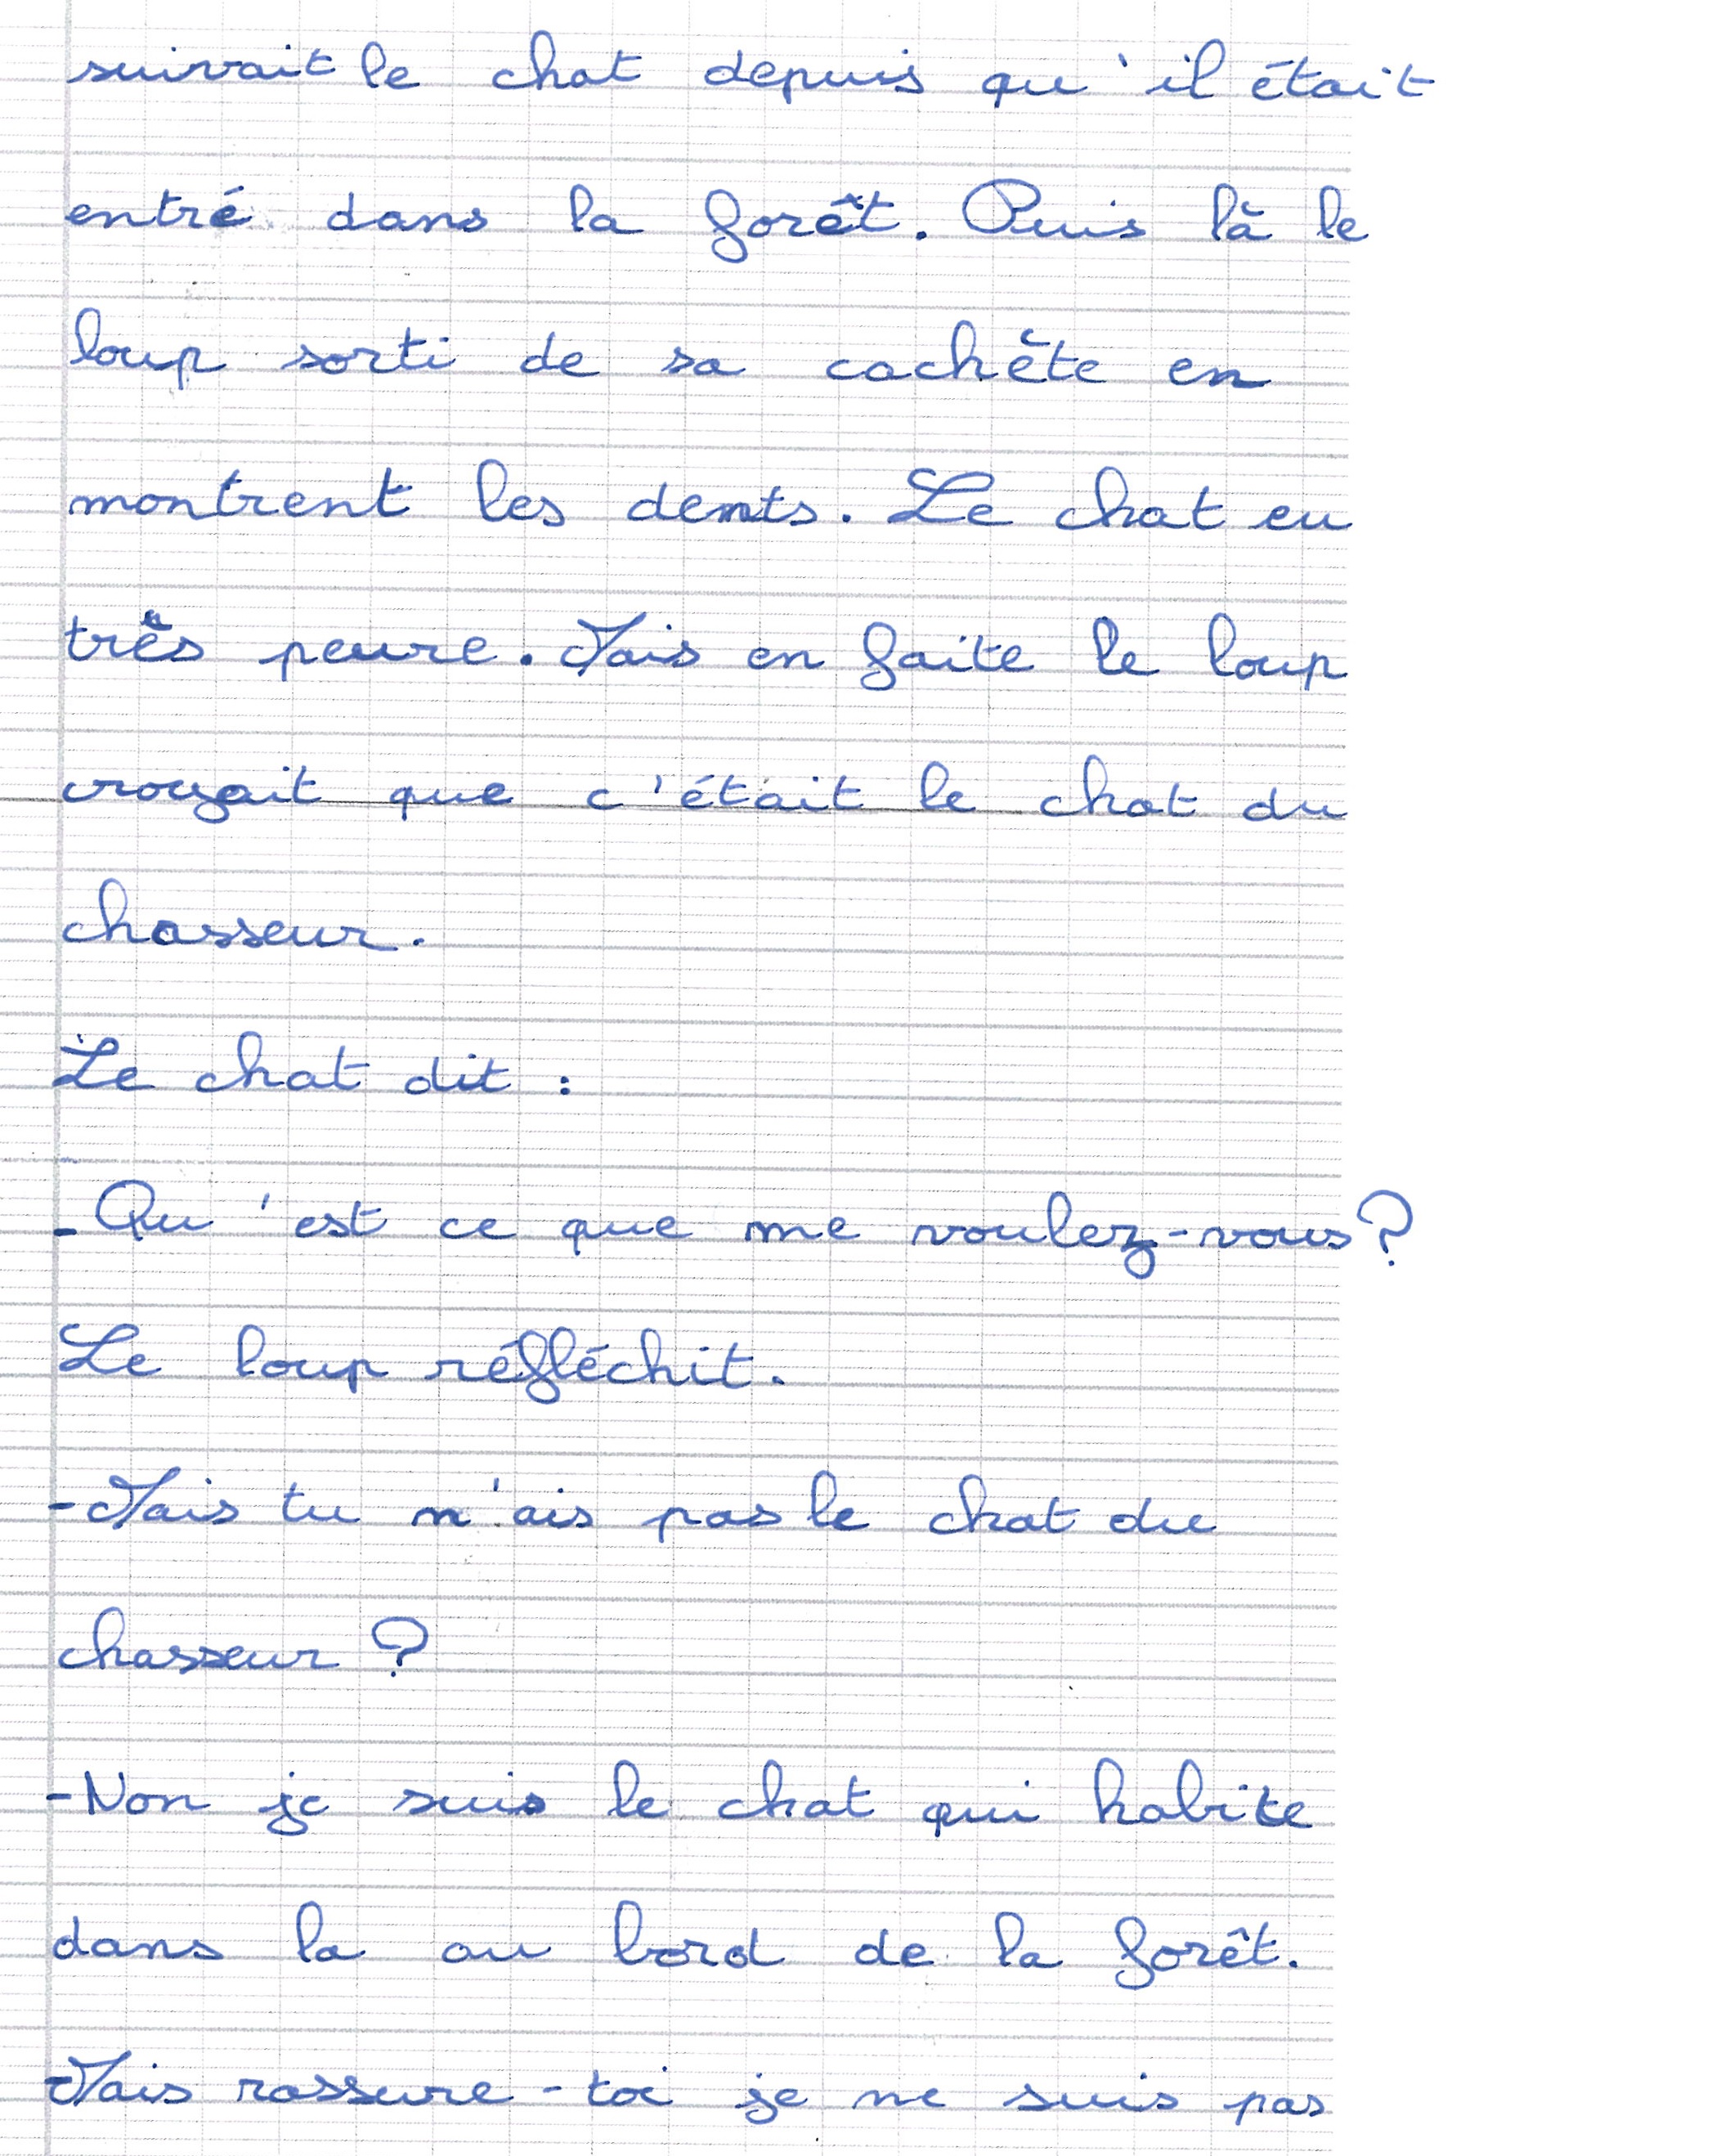 suivait le chat depuis qu'il était
entré dans la forêt. Puis là le
loup sorti de sa cachète en
montrent les dents. Le chat eu
très peure. Mais en faite le loup
croyait que c'était le chat du
chasseur.
Le chat dit :
- Qu'est ce que me voulez-vous ?
Le loup réfléchit.
- Mais tu n'ais pas le chat du
chasseur ?
- Non je suis le chat qui habite
dans la au bord de la forêt.
Mais rassure-toi je ne suis pas